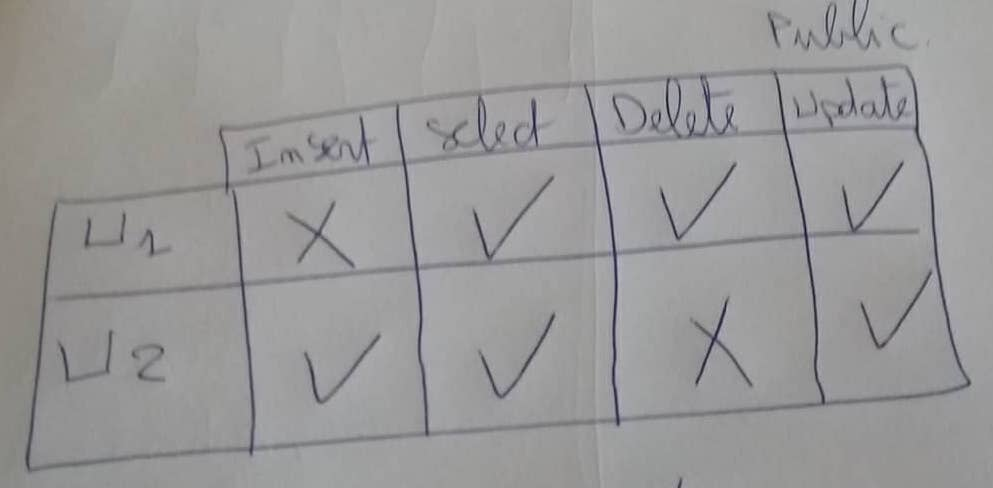 Public.
Insert Select Delete Update
U1 X ✓ ✓ ✓
U2 ✓ ✓ X ✓